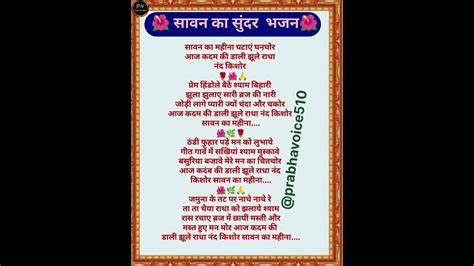 PV
🌺 सावन का सुंदर भजन🌺
सावन का महीना घटाएं घनघोर
आज कदम की डाली झूले राधा
नंद किशोर
🌹🌺🙏
प्रेम हिंडोले बैठे श्याम बिहारी
झूला झुलाए सारी ब्रज की नारी
जोड़ी लागे प्यारी ज्यों चंदा और चकोर
आज कदम की डाली झूले राधा नंद किशोर
सावन का महीना....
🌺🌿🌹
ठंडी फुहार पड़े मन को लुभाये
गीत गावे में सखियां श्याम मुस्कावे
बसुरिया बजावे मेरे मन का चितचोर
आज कदंब की डाली झूले राधा नंद
किशोर सावन का महीना....
🌺🌿🙏
जमुना के तट पर नाचे नाचे रे
ता ता थैया राधा को झलाये श्याम
रास रचाए ब्रज में छायी मस्ती और
मस्त हुए मन मोर आज कदम की
डाली झूले राधा नंद किशोर सावन का महीना....
@prabhavoice510